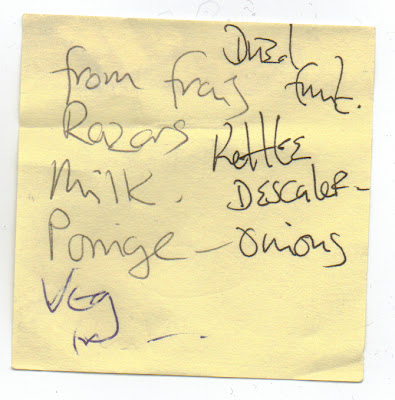 from frais
Razors
Milk.
Porrige –
Veg
Dried
fruit.
KettlE
DEScalEr –
onions